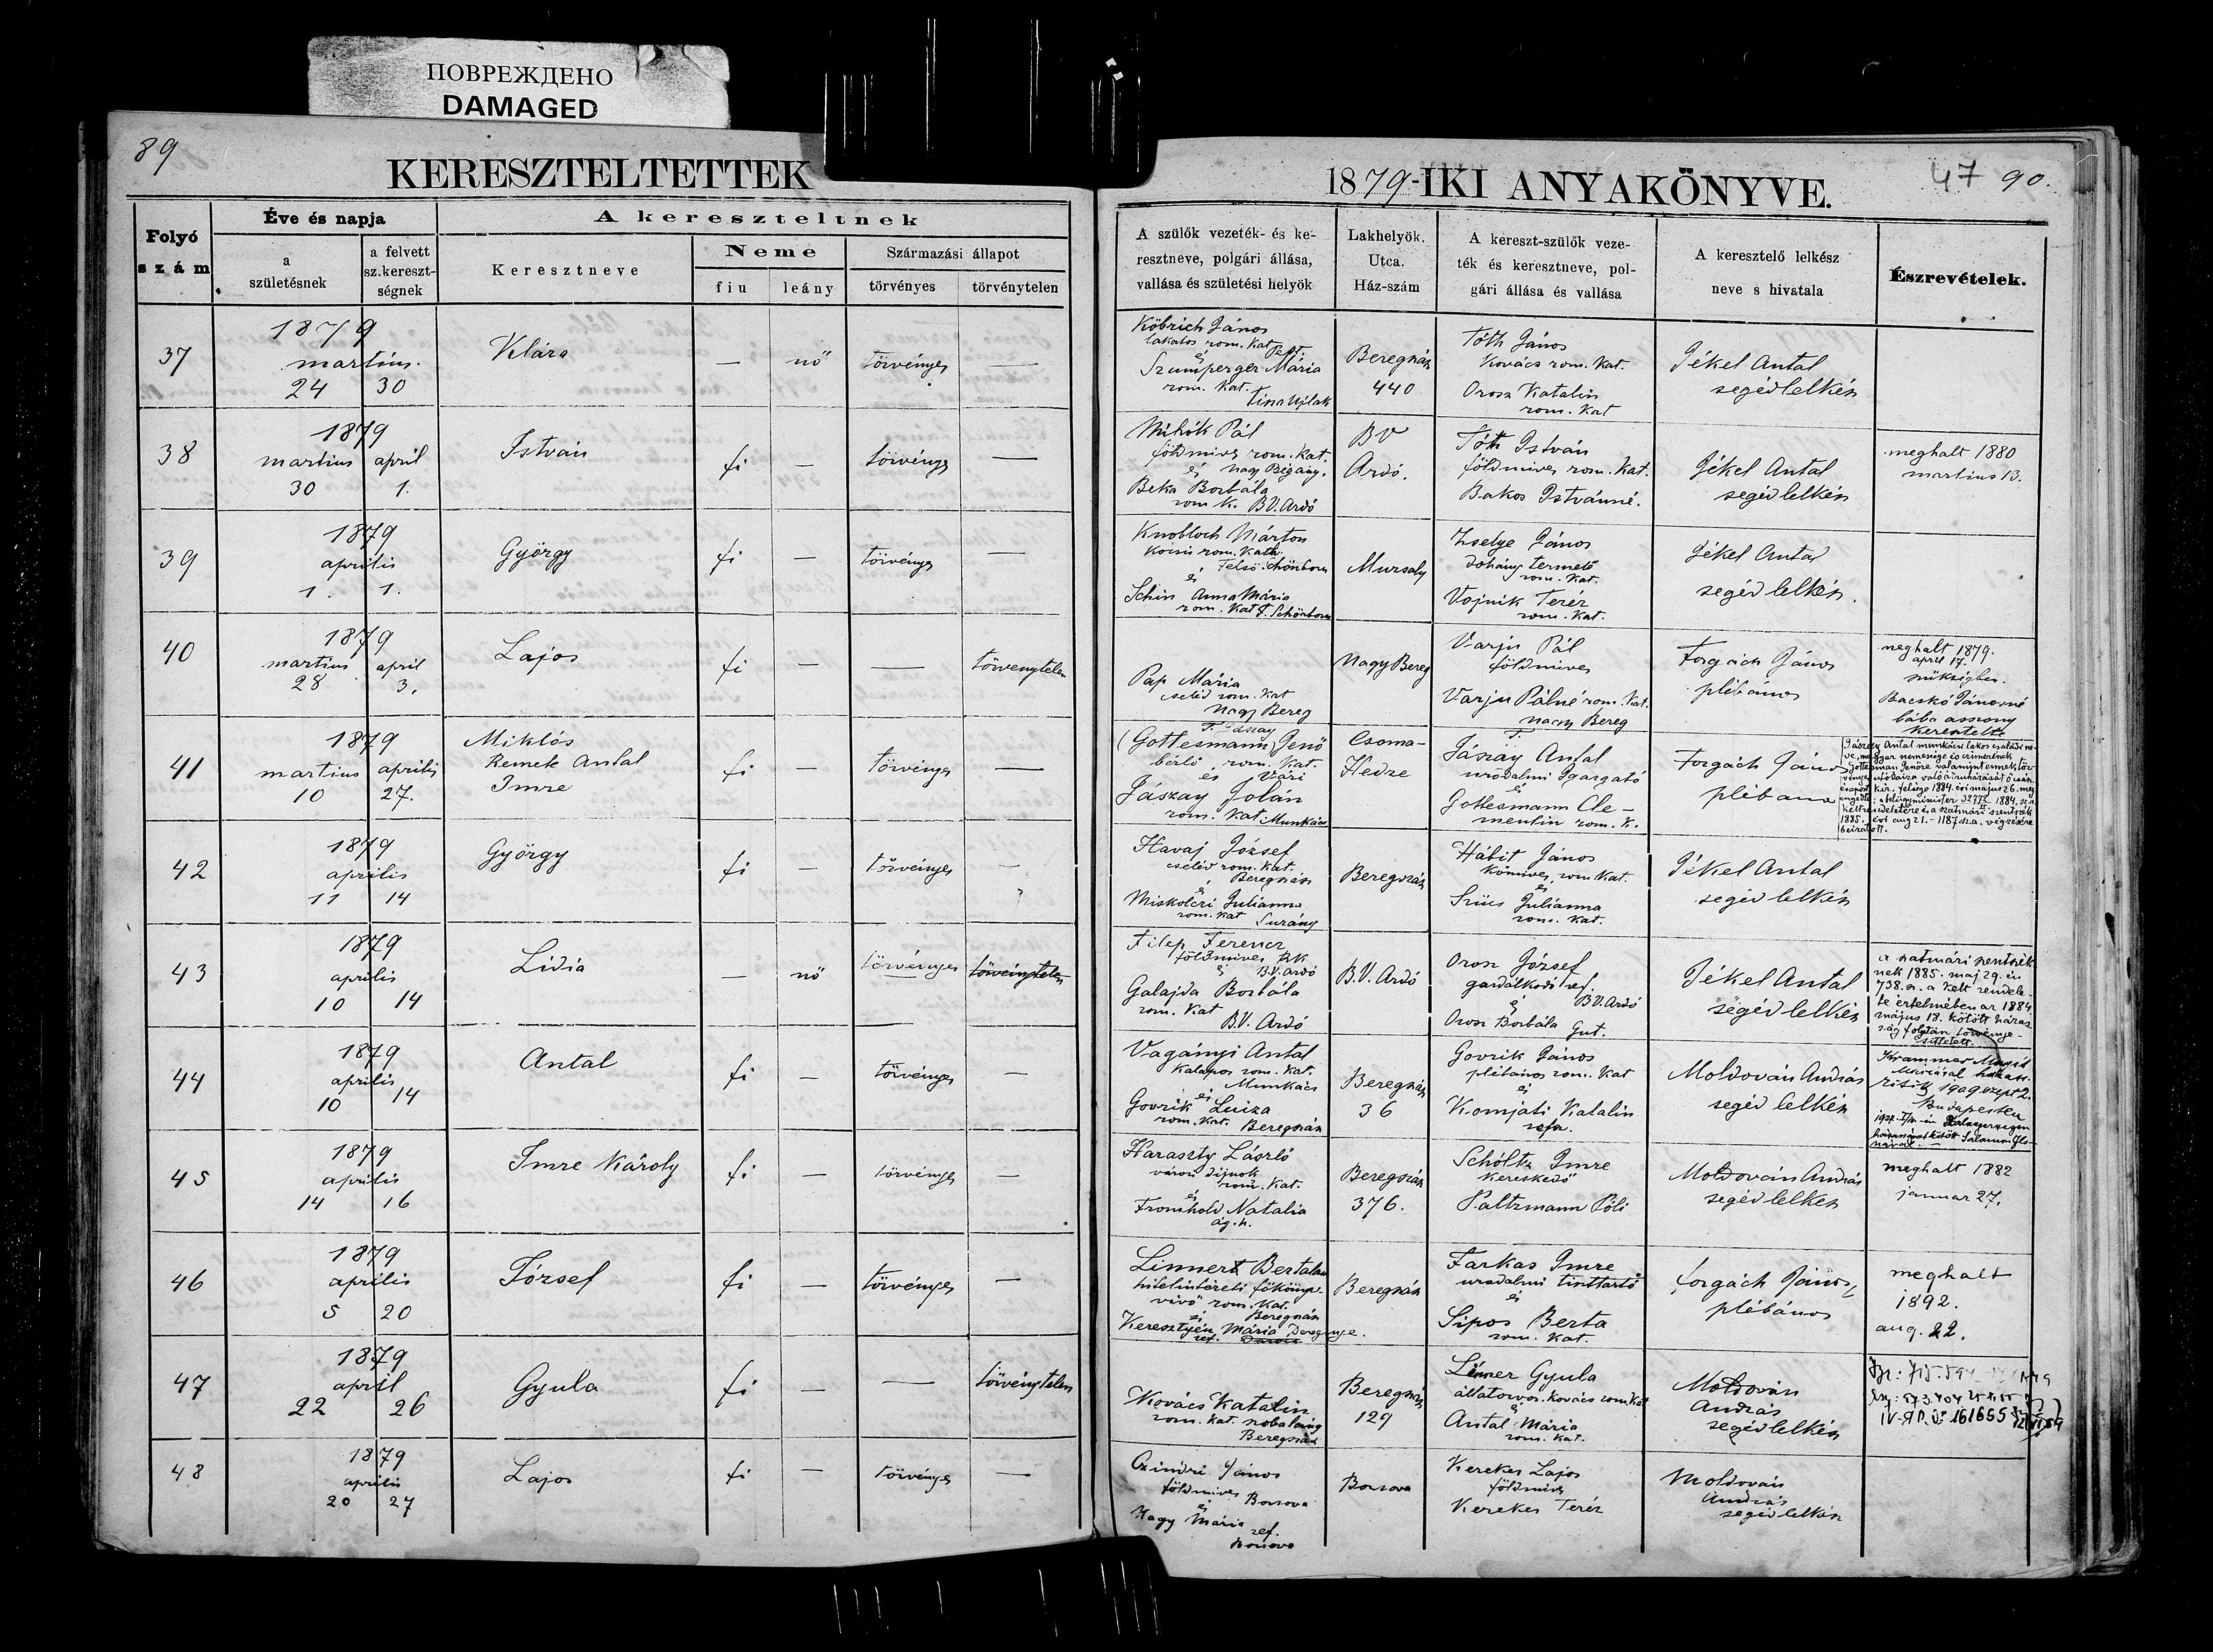 ПОВРЕЖДЕНО
DAMAGED
89
KERESZTELTETTEK
1879-IKI ANYAKÖNYVE.
47 90.
Folyó szám
Éve és napja
a születésnek
a felvett sz.kereszt-ségnek
A kereszteltnek
Keresztneve
Neme
fiu
leány
Származási állapot
törvényes
törvénytelen
A szülők vezeték- és ke-
resztneve, polgári állása,
vallása és születési helyök
Lakhelyök.
Utca.
Ház-szám
A kereszt-szülők veze-
ték és keresztneve, pol-
gári állása és vallása
A keresztelő lelkész
neve s hivatala
Észrevételek.
37
1879
martius.
24 30
Klára
— nő törvényes —
Köbrich János
lakatos rom. kat. Pest.
és
Szumperger Mária
rom. kat.
Tisza Ujlak
Beregszász
440
Tóth János
Kovács rom. kat.
Orosz Katalin
rom. kat
Jékel Antal
segédlelkész
38
1879
martius april
30 1.
István
fi — törvényes —
Mihók Pál
földmives rom. kat.
és Nagy Bégány.
Beka Borbála
rom k. B.V. Ardó
BV
Ardó.
Tóth István
földmives rom. kat.
Bakos Istvánné.
Jékel Antal
segédlelkész
meghalt 1880
martius 13.
39
1879
április
1. 1.
György
fi — törvényes —
Knobloch Márton
kocsis rom. kath.
Felső Schönborn
és
Schin Anna Mária
rom. Kat F. Schönborn
Muzsaly
Zselye János
dohány termelő
rom. kat.
Vojnik Teréz
rom. kat.
Jékel Antal
segéd lelkész.
40
1879
martius april
28 3.
Lajos
fi — — törvenytelen
Pap Mária
cseléd rom. kat
Nagy Bereg
Nagy Bereg
Varju Pál
földmives
Varju Pálné rom. kat.
Nagy Bereg
Forgách János
plébános
meghalt 1879.
april 17.
szükségben.
Bacskó Jánosné
bába asszony
keresztelte
41
1879
martius április
10 27.
Miklós
Remete Antal
Imre
fi — törvényes
F. Jászay
(Gottesmann) Jenő
bérlő rom. kat.
és Vári
Jászay Jolán
rom. kat. Munkács
Csoma-
Hedre
F.
Jászay Antal
uradalmi Igazgató
és
Gottesmann Cle-
mentin rom. k.
Forgách János
plébános
Jászay Antal munkácsi lakos családi ne-
ve, magyar nemessége és czimerének
Gottesman Jenőre valamint ennek tör-
vényes utódaira való átruházását Ő csász.
és apost. kir. felsége 1884. évi május 26. meg
engedte; a belügyminister 32772 1884. sz. a.
kelt rendeletére és a szatmári szentszék
1885. évi aug 21. - 1187 sz. a. végzésére
beiratott.
42
1879
április
11 14
György
fi — törvényes —
Havaj József
cseléd rom. kat.
Beregszász
és
Miskolczi Julianna
rom. kat Surány
Beregszász
Hábit János
kőmives, rom kat.
és
Szűcs Juliánna
rom. kat.
Jékel Antal
segéd lelkész
43
1879
április
10 14
Lidia
— nő törvényes törvénytelen
Filep Ferencz
földmives
és B.V. Ardó
Galajda Borbála
rom. kat
B.V. Ardó
B.V. Ardó
Orosz József
gazdálkodó ref.
és B.V. Ardó
Orosz Borbála Gut.
Jékel Antal
segéd lelkész
a szatmári szentszék-
nek 1885. maj 29. én
738. sz. a kelt rendele-
te értelmében az 1884
május 18. kötött házas-
ság folytán törvénye-
síttetett.
44
1879
április
10 14
Antal
fi — törvényes —
Vagányi Antal
Kalapos rom. kat.
Munkács
és
Govrik Luiza
rom. kat. Beregszász
Beregszász
36
Govrik János
plébános rom. kat
és
Komjáti Katalin
refor.
Moldován András
segéd lelkész
1909 szept 2.
Budapesten
45
1879
április
14 16
Imre Károly
fi — törvényes —
Haraszty László
városi dijnok
rom. kat.
és
Fromhold Natalia
ág. h.
Beregszász
376.
Schóltz Imre
kereskedő
Paltzmann Póli
Moldován András
segéd lelkész
meghalt 1882
januar 27.
46
1879
április
5 20
József
fi — törvényes —
Linnert Bertalan
hitelintézeti főköny-
vivő rom. kat.
és Beregszász
Keresztyén Mária
ref.
Beregszász
Farkas Imre
uradalmi tiszttartó
és
Sipos Berta
rom. kat.
Forgách János,
plébános
meghalt
1892.
aug. 22.
47
1879
april
22 26
Gyula
fi — — törvénytelen
Kovács Katalin
rom. kat. szobaleány
Beregszász
Beregszász
129
Linner Gyula
állatorvos. kovács rom. kat
és
Antal Mária
rom. kat.
Moldován
András
segéd lelkész
161655
48
1879
április
20 27
Lajos
fi — törvényes —
Czindri János
földmives Borsova
és
Nagy Mária ref.
Borsova
Borsova
Kerekes Lajos
földmives
Kerekes Teréz
Moldován
András
segéd lelkész